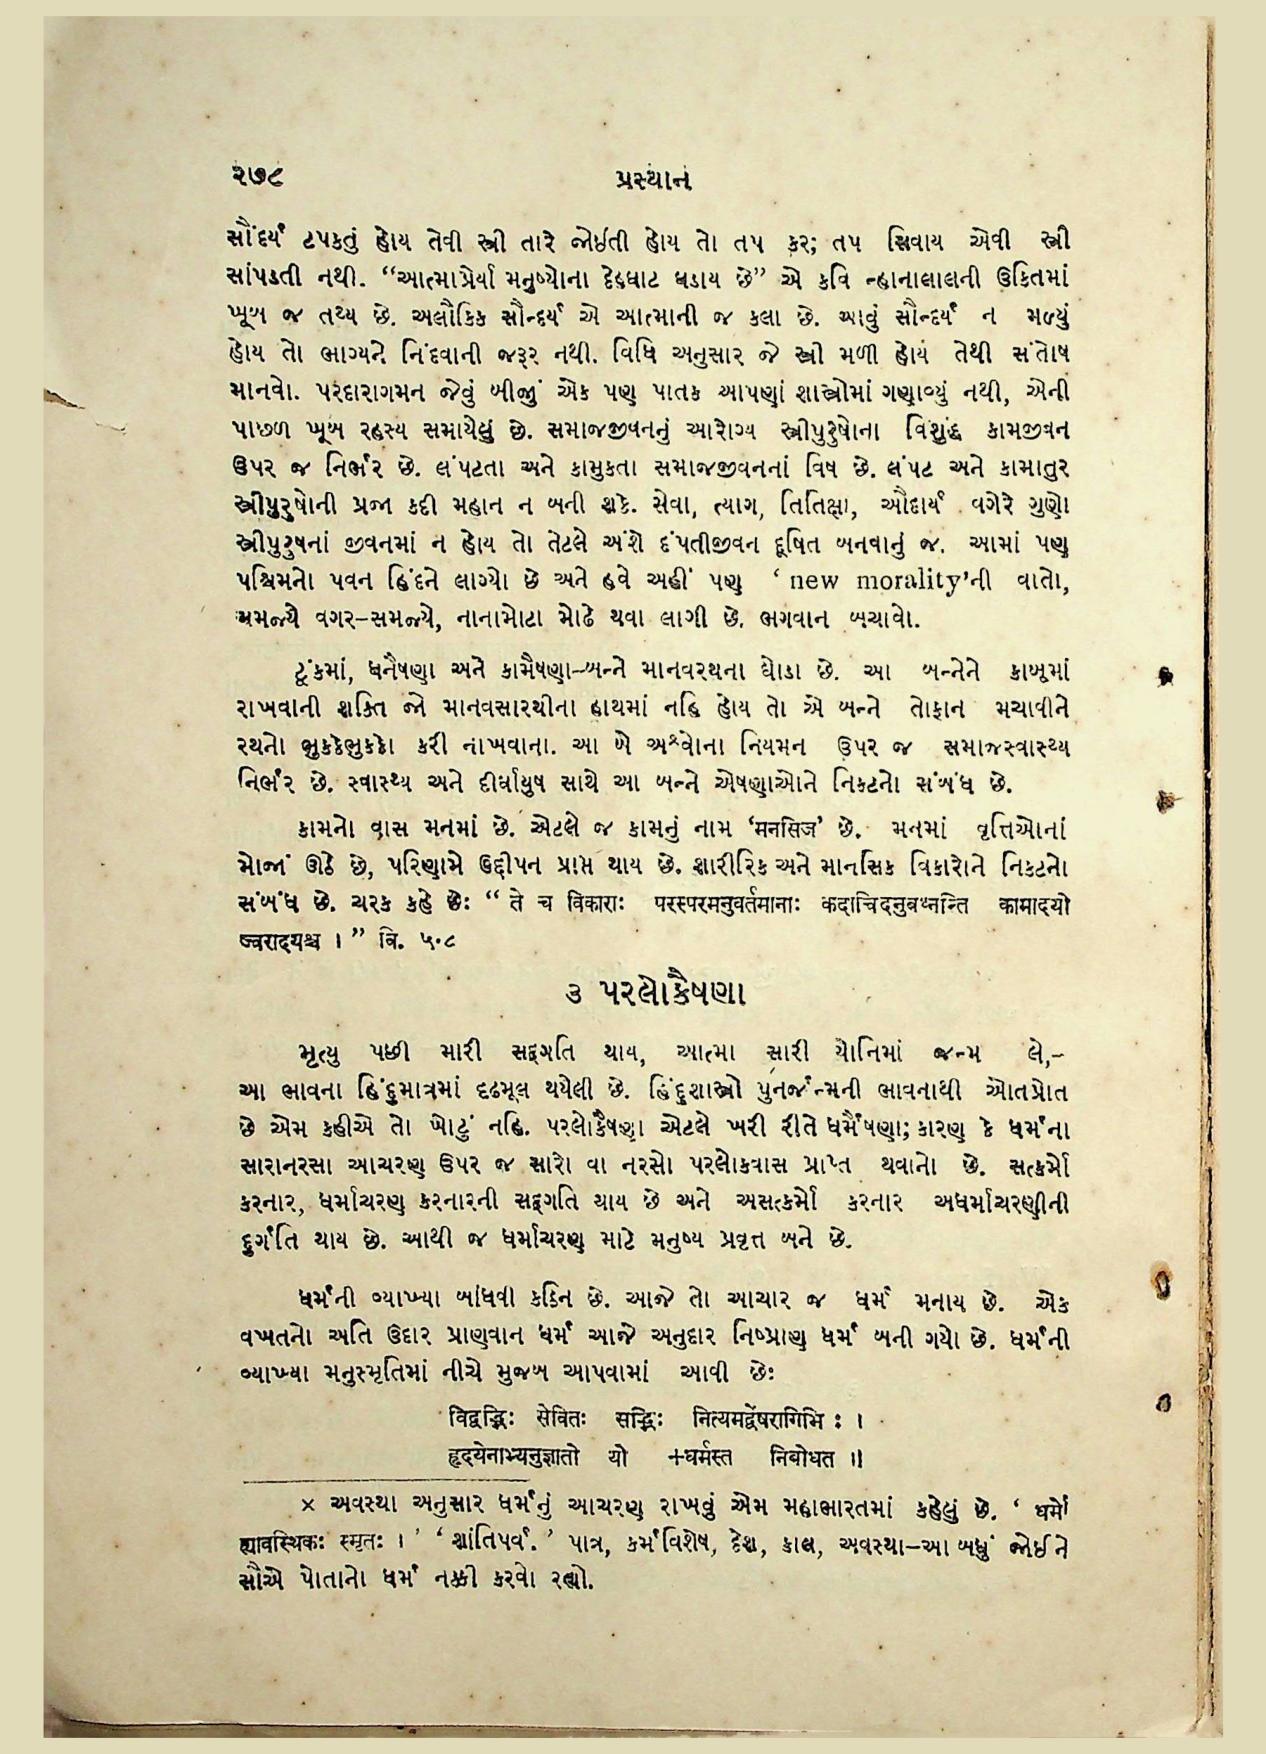 ૨૭૮ પ્રસ્થાન
સૌંદર્ય ટપકતું હોય તેવી સ્ત્રી તારે જોઈતી હોય તો તપ કર; તપ સિવાય એવી સ્ત્રી
સાંપડતી નથી. “આત્માપ્રેર્યા મનુષ્યોના દેહઘાટ ઘડાય છે” એ કવિ ન્હાનાલાલની ઉક્તિમાં
ખૂબ જ તથ્ય છે. અલૌકિક સૌન્દર્ય એ આત્માની જ કલા છે. આવું સૌન્દર્ય ન મળ્યું
હોય તો ભાગ્યને નિંદવાની જરૂર નથી. વિધિ અનુસાર જે સ્ત્રી મળી હોય તેથી સંતોષ
માનવો. પરદારાગમન જેવું બીજું એક પણ પાતક આપણાં શાસ્ત્રોમાં ગણાવ્યું નથી, એની
પાછળ ખૂબ રહસ્ય સમાયેલું છે. સમાજજીવનનું આરોગ્ય સ્ત્રીપુરુષોના વિશુદ્ધ કામજીવન
ઉપર જ નિર્ભર છે. લંપટતા અને કામુકતા સમાજજીવનનાં વિષ છે. લંપટ અને કામાતુર
સ્ત્રીપુરુષોની પ્રજા કદી મહાન ન બની શકે. સેવા, ત્યાગ, તિતિક્ષા, ઔદાર્ય વગેરે ગુણો
સ્ત્રીપુરુષનાં જીવનમાં ન હોય તો તેટલે અંશે દંપતીજીવન દૂષિત બનવાનું જ. આમાં પણ
પશ્ચિમનો પવન હિંદને લાગ્યો છે અને હવે અહીં પણ ‘ new morality’ની વાતો,
સમજ્યે વગર-સમજ્યે, નાનામોટા મોઢે થવા લાગી છે. ભગવાન બચાવો.
ટૂંકમાં, ધનૈષણા અને કામૈષણા-બન્ને માનવરથના ઘોડા છે. આ બન્નેને કાબૂમાં
રાખવાની શક્તિ જો માનવસારથીના હાથમાં નહિ હોય તો એ બન્ને તોફાન મચાવીને
રથનો ભુકડેભુકડો કરી નાખવાના. આ બે અશ્વોના નિયમન ઉપર જ સમાજસ્વાસ્થ્ય
નિર્ભર છે. સ્વાસ્થ્ય અને દીર્ઘાયુષ સાથે આ બન્ને એષણાઓને નિકટનો સંબંધ છે.
કામનો વાસ મનમાં છે. એટલે જ કામનું નામ ‘मनसिज’ છે. મનમાં વૃત્તિઓનાં
મોજાં ઊઠે છે, પરિણામે ઉદ્દીપન પ્રાપ્ત થાય છે. શારીરિક અને માનસિક વિકારોને નિકટનો
સંબંધ છે. ચરક કહે છેઃ “ ते च विकाराः परस्परमनुवर्तमानाः कदाचिदनुबध्नन्ति कामादयो
ज्वरादयश्च । ” વિ. ૫·૮
૩ પરલોકૈષણા
મૃત્યુ પછી મારી સદ્ગતિ થાય, આત્મા સારી યોનિમાં જન્મ લે,-
આ ભાવના હિંદુમાત્રમાં દૃઢમૂલ થયેલી છે. હિંદુશાસ્ત્રો પુનર્જન્મની ભાવનાથી ઓતપ્રોત
છે એમ કહીએ તો ખોટું નહિ. પરલોકૈષણા એટલે ખરી રીતે ધર્મૈષણા; કારણ કે ધર્મના
સારાનરસા આચરણ ઉપર જ સારો વા નરસો પરલોકવાસ પ્રાપ્ત થવાનો છે. સત્કર્મો
કરનાર, ધર્માચરણ કરનારની સદ્ગતિ થાય છે અને અસત્કર્મો કરનાર અધર્માચરણીની
દુર્ગતિ થાય છે. આથી જ ધર્માચરણ માટે મનુષ્ય પ્રવૃત્ત બને છે.
ધર્મની વ્યાખ્યા બાંધવી કઠિન છે. આજે તો આચાર જ ધર્મ મનાય છે. એક
વખતનો અતિ ઉદાર પ્રાણવાન ધર્મ આજે અનુદાર નિષ્પ્રાણ ધર્મ બની ગયો છે. ધર્મની
વ્યાખ્યા મનુસ્મૃતિમાં નીચે મુજબ આપવામાં આવી છેઃ
विद्वद्भिः सेवितः सद्भिः नित्यमद्वेषरागिभि : ।
हृदयेनाभ्यनुज्ञातो यो +धर्मस्त निबोधत ॥
× અવસ્થા અનુસાર ધર્મનું આચરણ રાખવું એમ મહાભારતમાં કહેલું છે. ‘ धर्मो
ह्यावस्थिकः स्मृतः । ’ ‘ શાંતિપર્વ. ’ પાત્ર, કર્મવિશેષ, દેશ, કાલ, અવસ્થા-આ બધું જોઈને
સૌએ પોતાનો ધર્મ નક્કી કરવો રહ્યો.